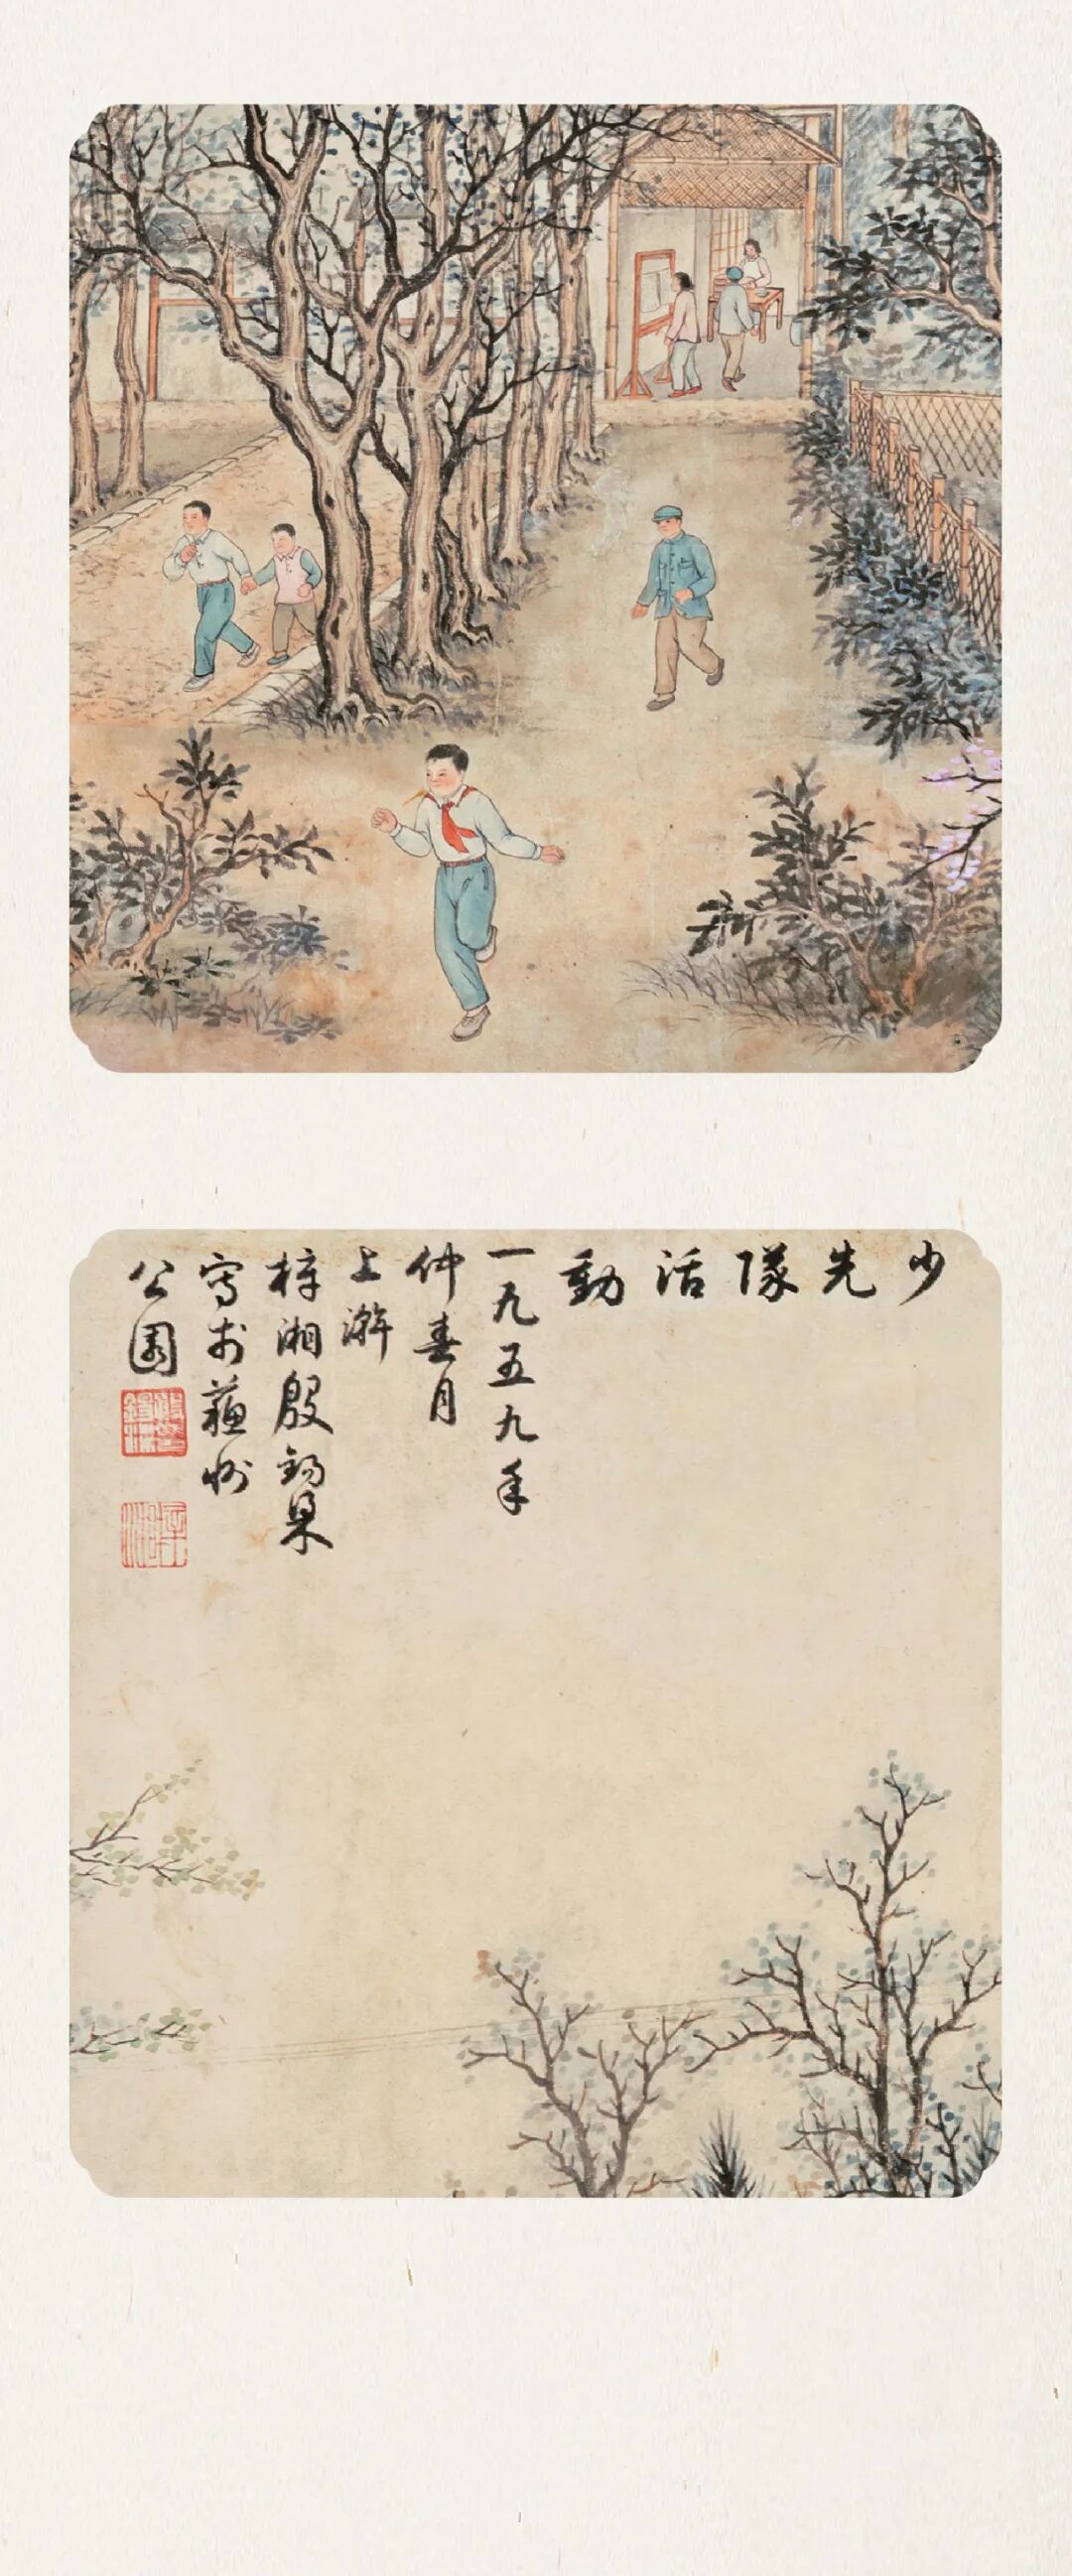 少先隊活動
一九五九年
仲春月
上澣
梓湘殷錫梁
寫於蘇州
公園
梓湘